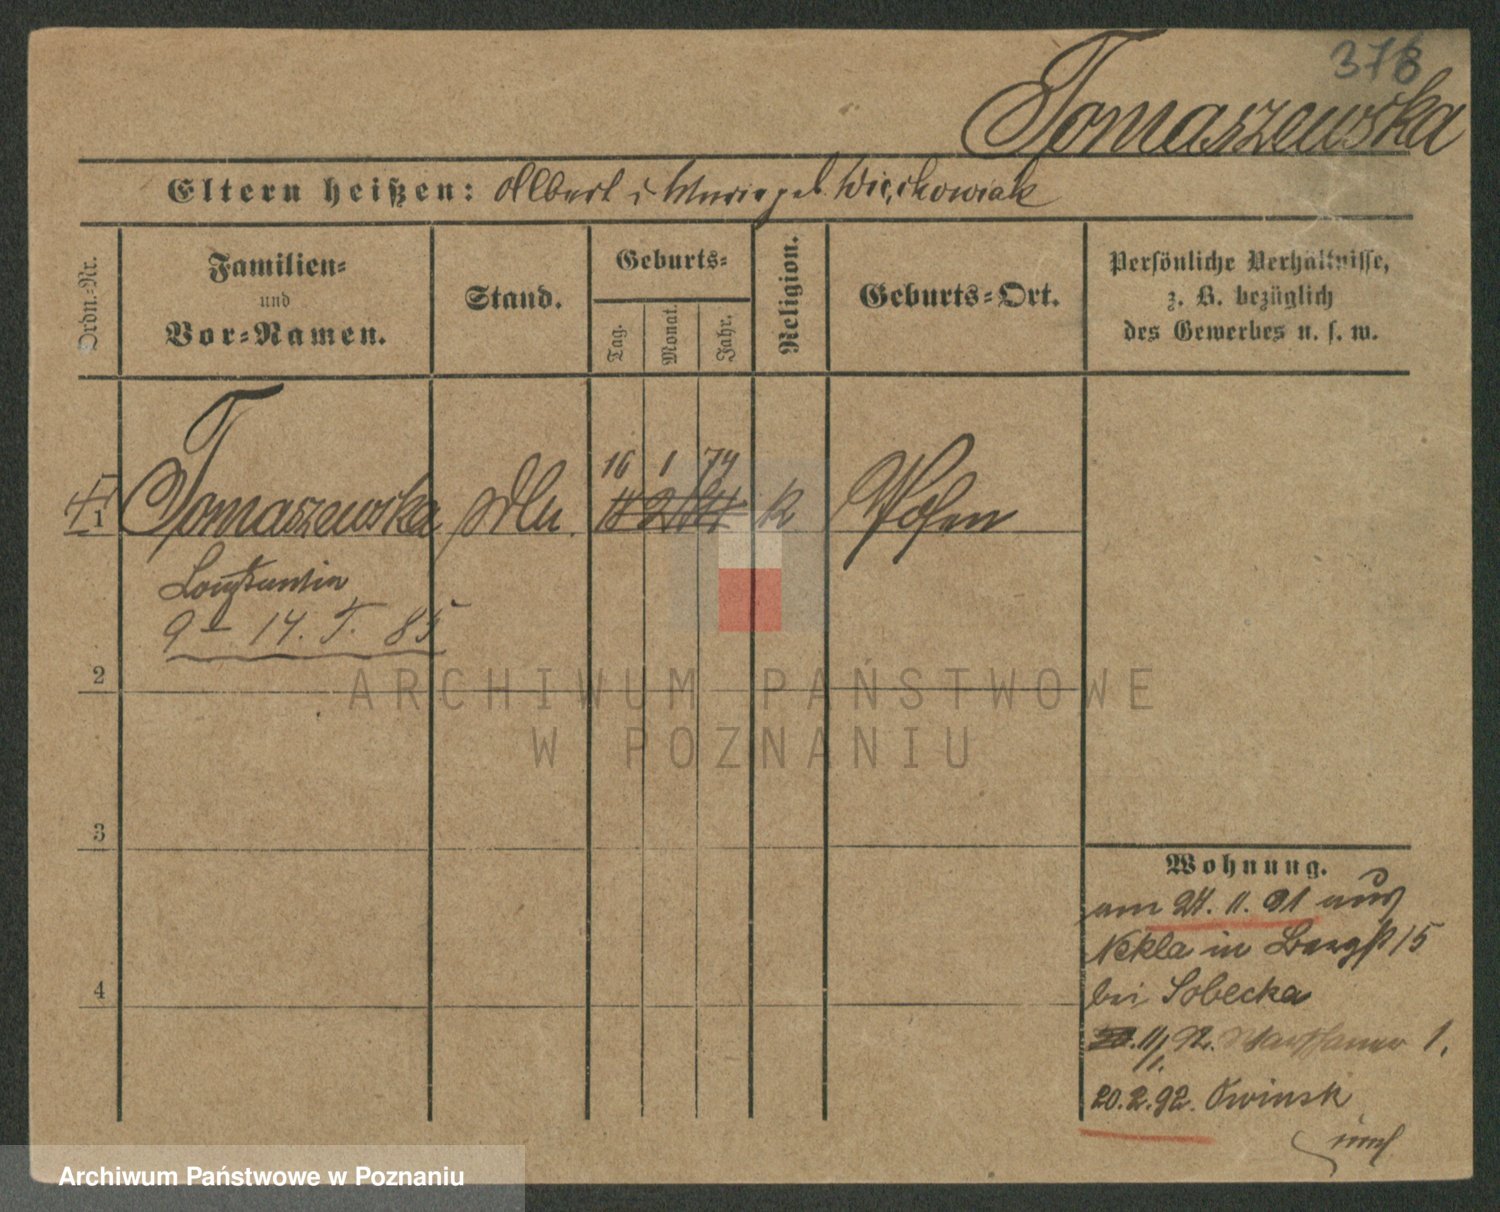 376
Tomaszewska
Eltern heißen: Albert u Maria geb. Więckowiak
Ordn.-Nr.
Familien-
und
Vor-Namen.
Stand.
Geburts-
Tag.
Monat.
Jahr.
Religion.
Geburts-Ort.
Persönliche Verhältnisse,
z. B. bezüglich
des Gewerbes u. s. w.
16 1 74
1 Tomaszewska k Posen
Constantin
9 - 14. T. 85
2
ARCHIWUM PAŃSTWOWE
W POZNANIU
3
Wohnung.
am 24. 11. 91 aus
Nekla in Bergstr 15
bei Sobecka
4
11/1. 92. Warschauer 1.
20.2.92. Owinsk
Archiwum Państwowe w Poznaniu